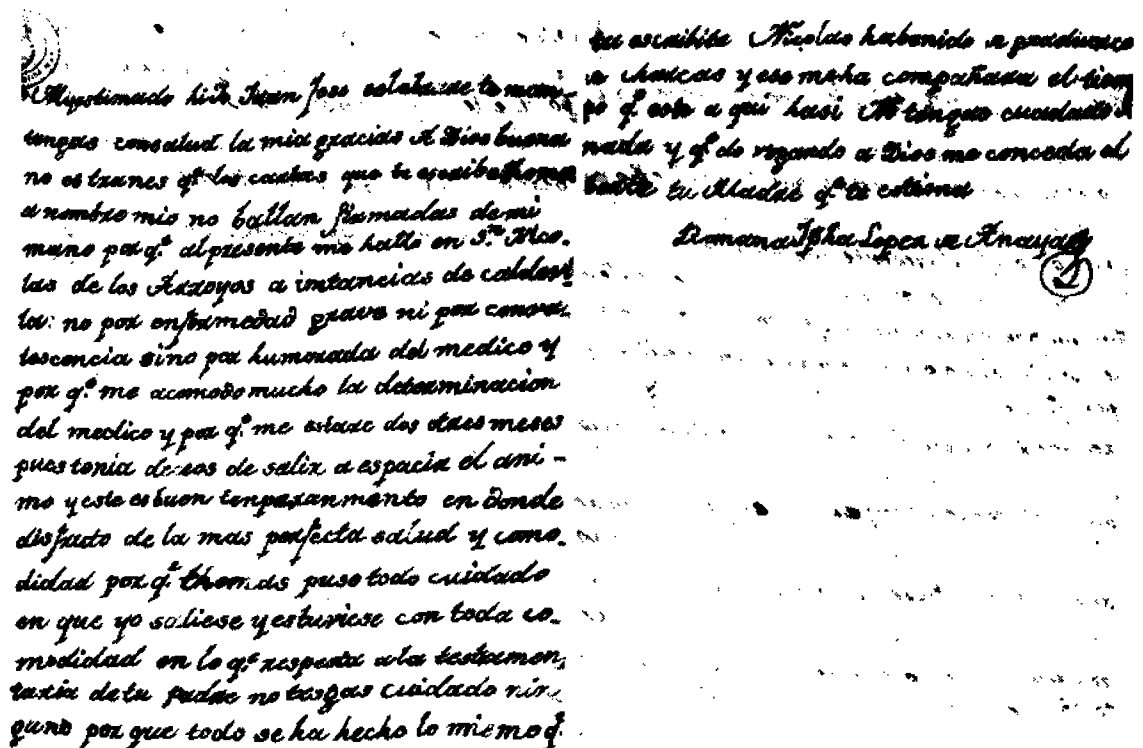 Muy estimado hijo Juan Jose celebrare te man-
tengas consalud. la mia gracias A Dios buena
no estranes q.e las cartas que te escribe thomas
a nombre mio no ballan firmadas de mi
mano por q.e al presente me hallo en S.n Nico-
las de los Arroyos a instancias de
la: no por enfermedad grave ni por conva-
lescencia sino por humorada del medico y
por q.e me acomodo mucho la determinacion
del medico y por q.e me estare dos o tres meses
pues tenia deseos de salir a espacir el ani-
mo y este es buen tenperanmento en donde
disfruto de la mas perfecta salud y como-
didad por q.e thomas puso todo cuidado
en que yo saliese y estuviese con toda co-
modidad en lo q.e respecta a la testamen-
taria de tu padre no tengas cuidado nin-
guno por que todo se ha hecho lo mismo q.e
tu escribite Nicolas habenido
a Charcas y ese me ha compañada el tiem
po q.e esto a qui hasi No tengas cuidado de
nada y q.e do rogando a Dios me conceda el
berte tu Madre q.e te estima
Romana Jpha Lopez de Anaya